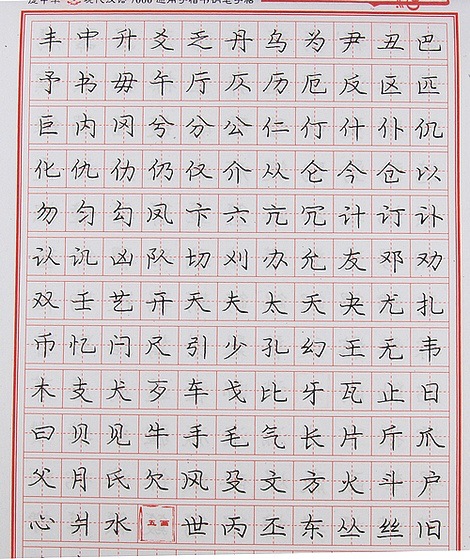 现代汉语7000通用字楷书钢笔字帖
丰中升爻乏丹乌为尹丑巴
予书毋午厅仄历厄反区匹
巨内冈兮分公仁仃什仆仉
化仇仂仍仅介从仑今仓以
勿匀勾凤卞六亢冗计订讣
认讥凶队切刈办允友邓劝
双壬艺开天夫太夭夬尤扎
币忆闩尺引少孔幻王无韦
木支犬歹车戈比牙瓦止日
曰贝见牛手毛气长片斤爪
父月氏欠风殳文方火斗户
心爿水五画世丙丕东丛丝旧